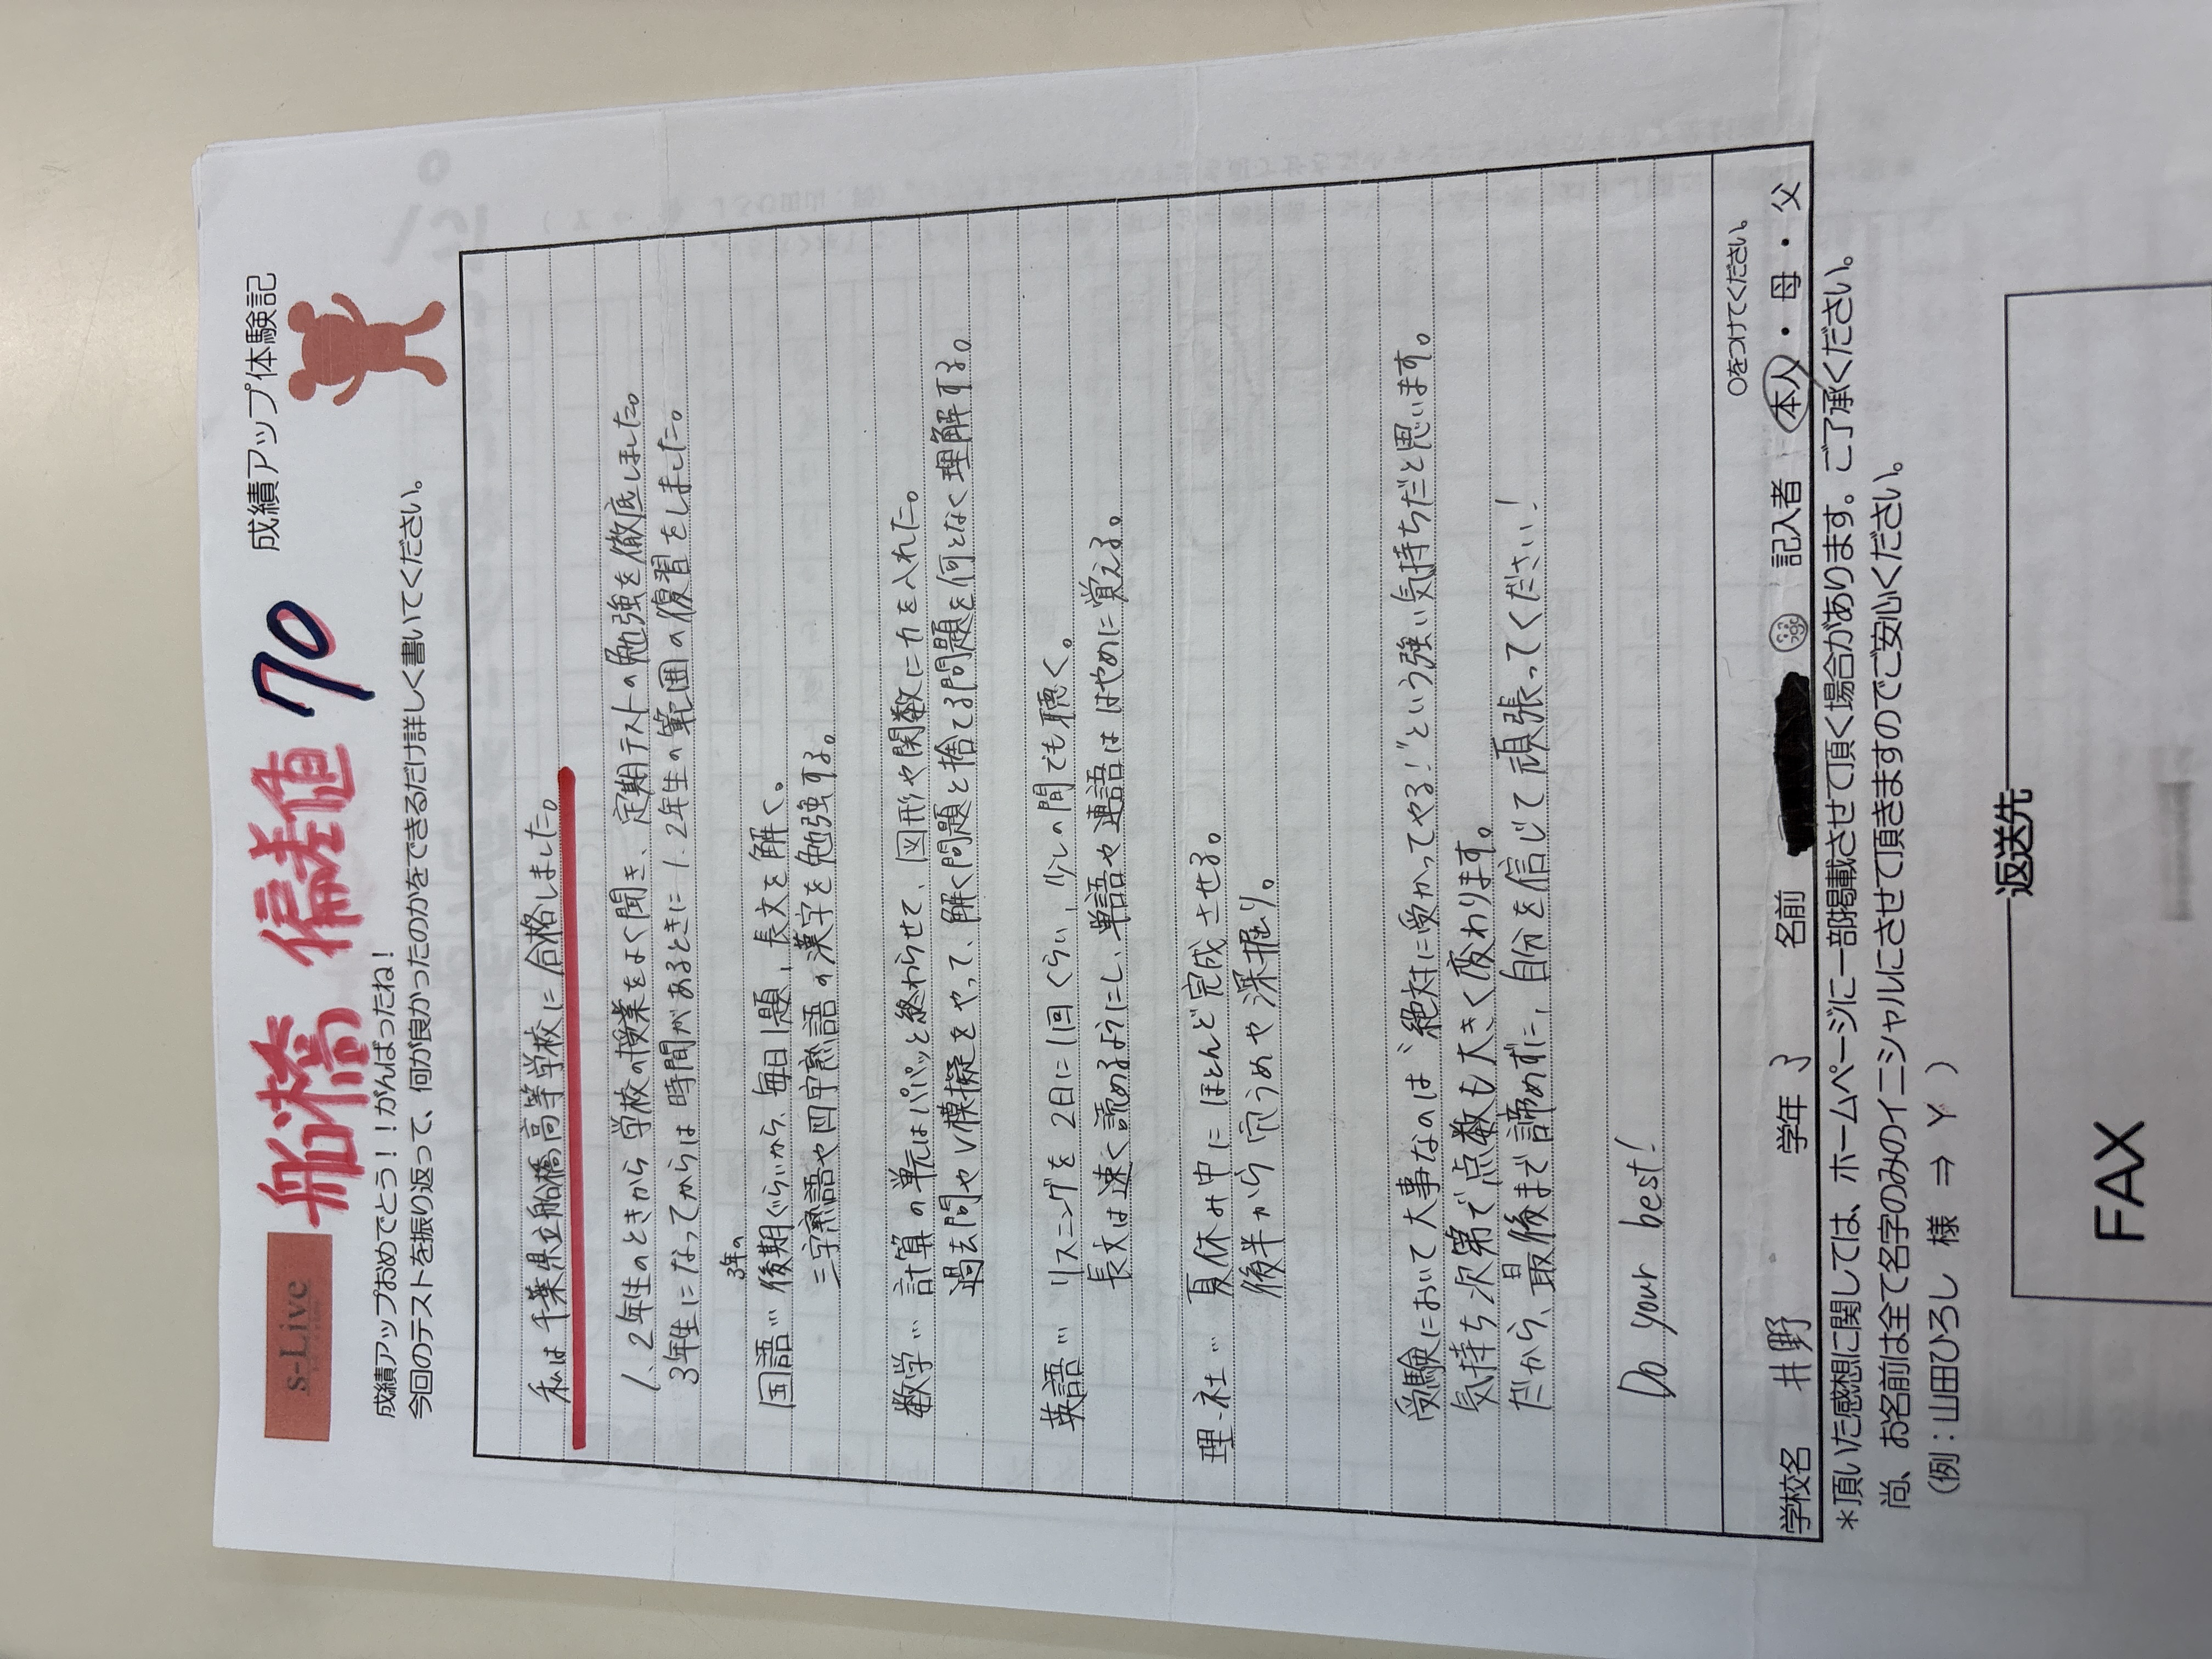 s-Live
船橋 偏差値 70
成績アップ体験記
成績アップおめでとう！！がんばったね！
今回のテストを振り返って、何が良かったのかをできるだけ詳しく書いてください。
私は千葉県立船橋高等学校に合格しました。
1、2年生のときから学校の授業をよく聞き、定期テストの勉強を徹底しました。
3年生になってからは時間があるときに1.2年生の範囲の復習をしました。
3年の
国語… 後期ぐらいから、毎日1題、長文を解く。
三字熟語や四字熟語の漢字を勉強する。
数学… 計算の単元はパパッと終わらせて、図形や関数に力を入れた。
過去問やV模擬をやって、解く問題と捨てる問題を何となく理解する。
英語… リスニングを2日に1回くらい、少しの間でも聴く。
長文は速く読めるようにし、単語や連語ははやめに覚える。
理・社… 夏休み中にほとんど完成させる。
後半から穴うめや深掘り。
受験において大事なのは“絶対に受かってやる！”という強い気持ちだと思います。
気持ち次第で点数も大きく変わります。
だから、最後まで諦めずに、自分を信じて頑張ってください！
Do your best!
○をつけてください。
学校名 井野 学年 3 名前 記入者 本人・母・父
＊頂いた感想に関しては、ホームページに一部掲載させて頂く場合があります。ご了承ください。
尚、お名前は全て名字のみのイニシャルにさせて頂きますのでご安心ください。
（例：山田ひろし 様 ⇒ Y ）
返送先
FAX